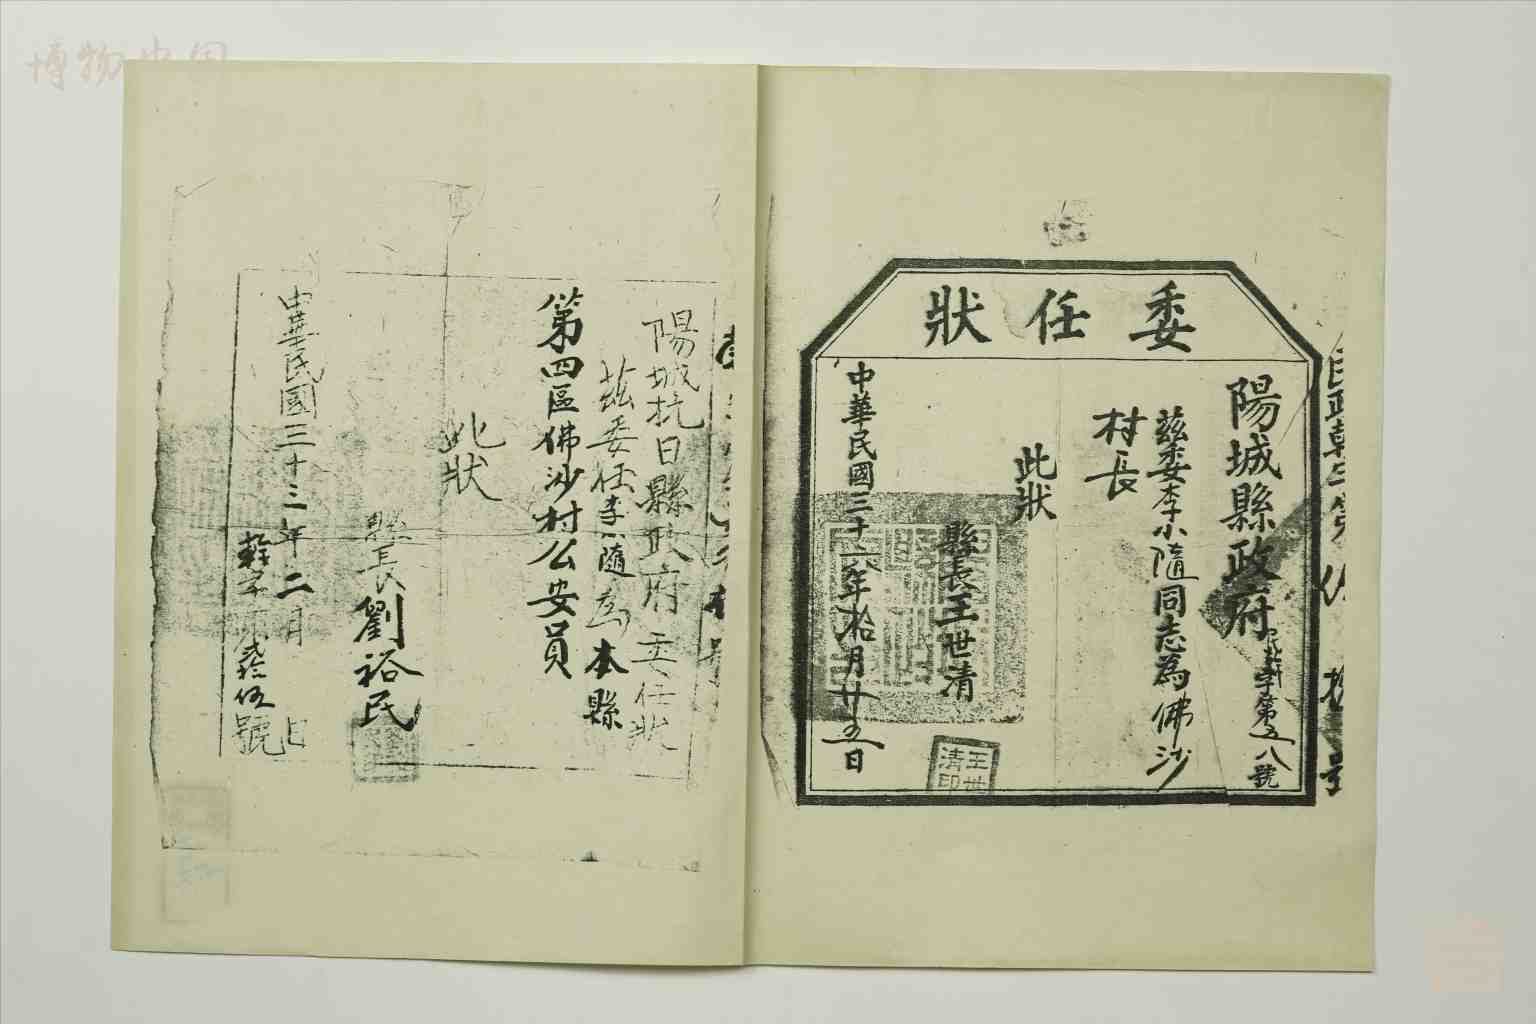 博物中国
委任狀
陽城縣政府
字第五八號
茲委李小隨同志為佛沙
村長
此狀
縣長王世清
王世清印
中華民國三十六年拾月廿五日
陽城抗日縣政府委任狀
茲委任李小隨為本縣
第四區佛沙村公安員
此狀
縣長劉裕民
中華民國三十三年二月 日
字第 拾伍號